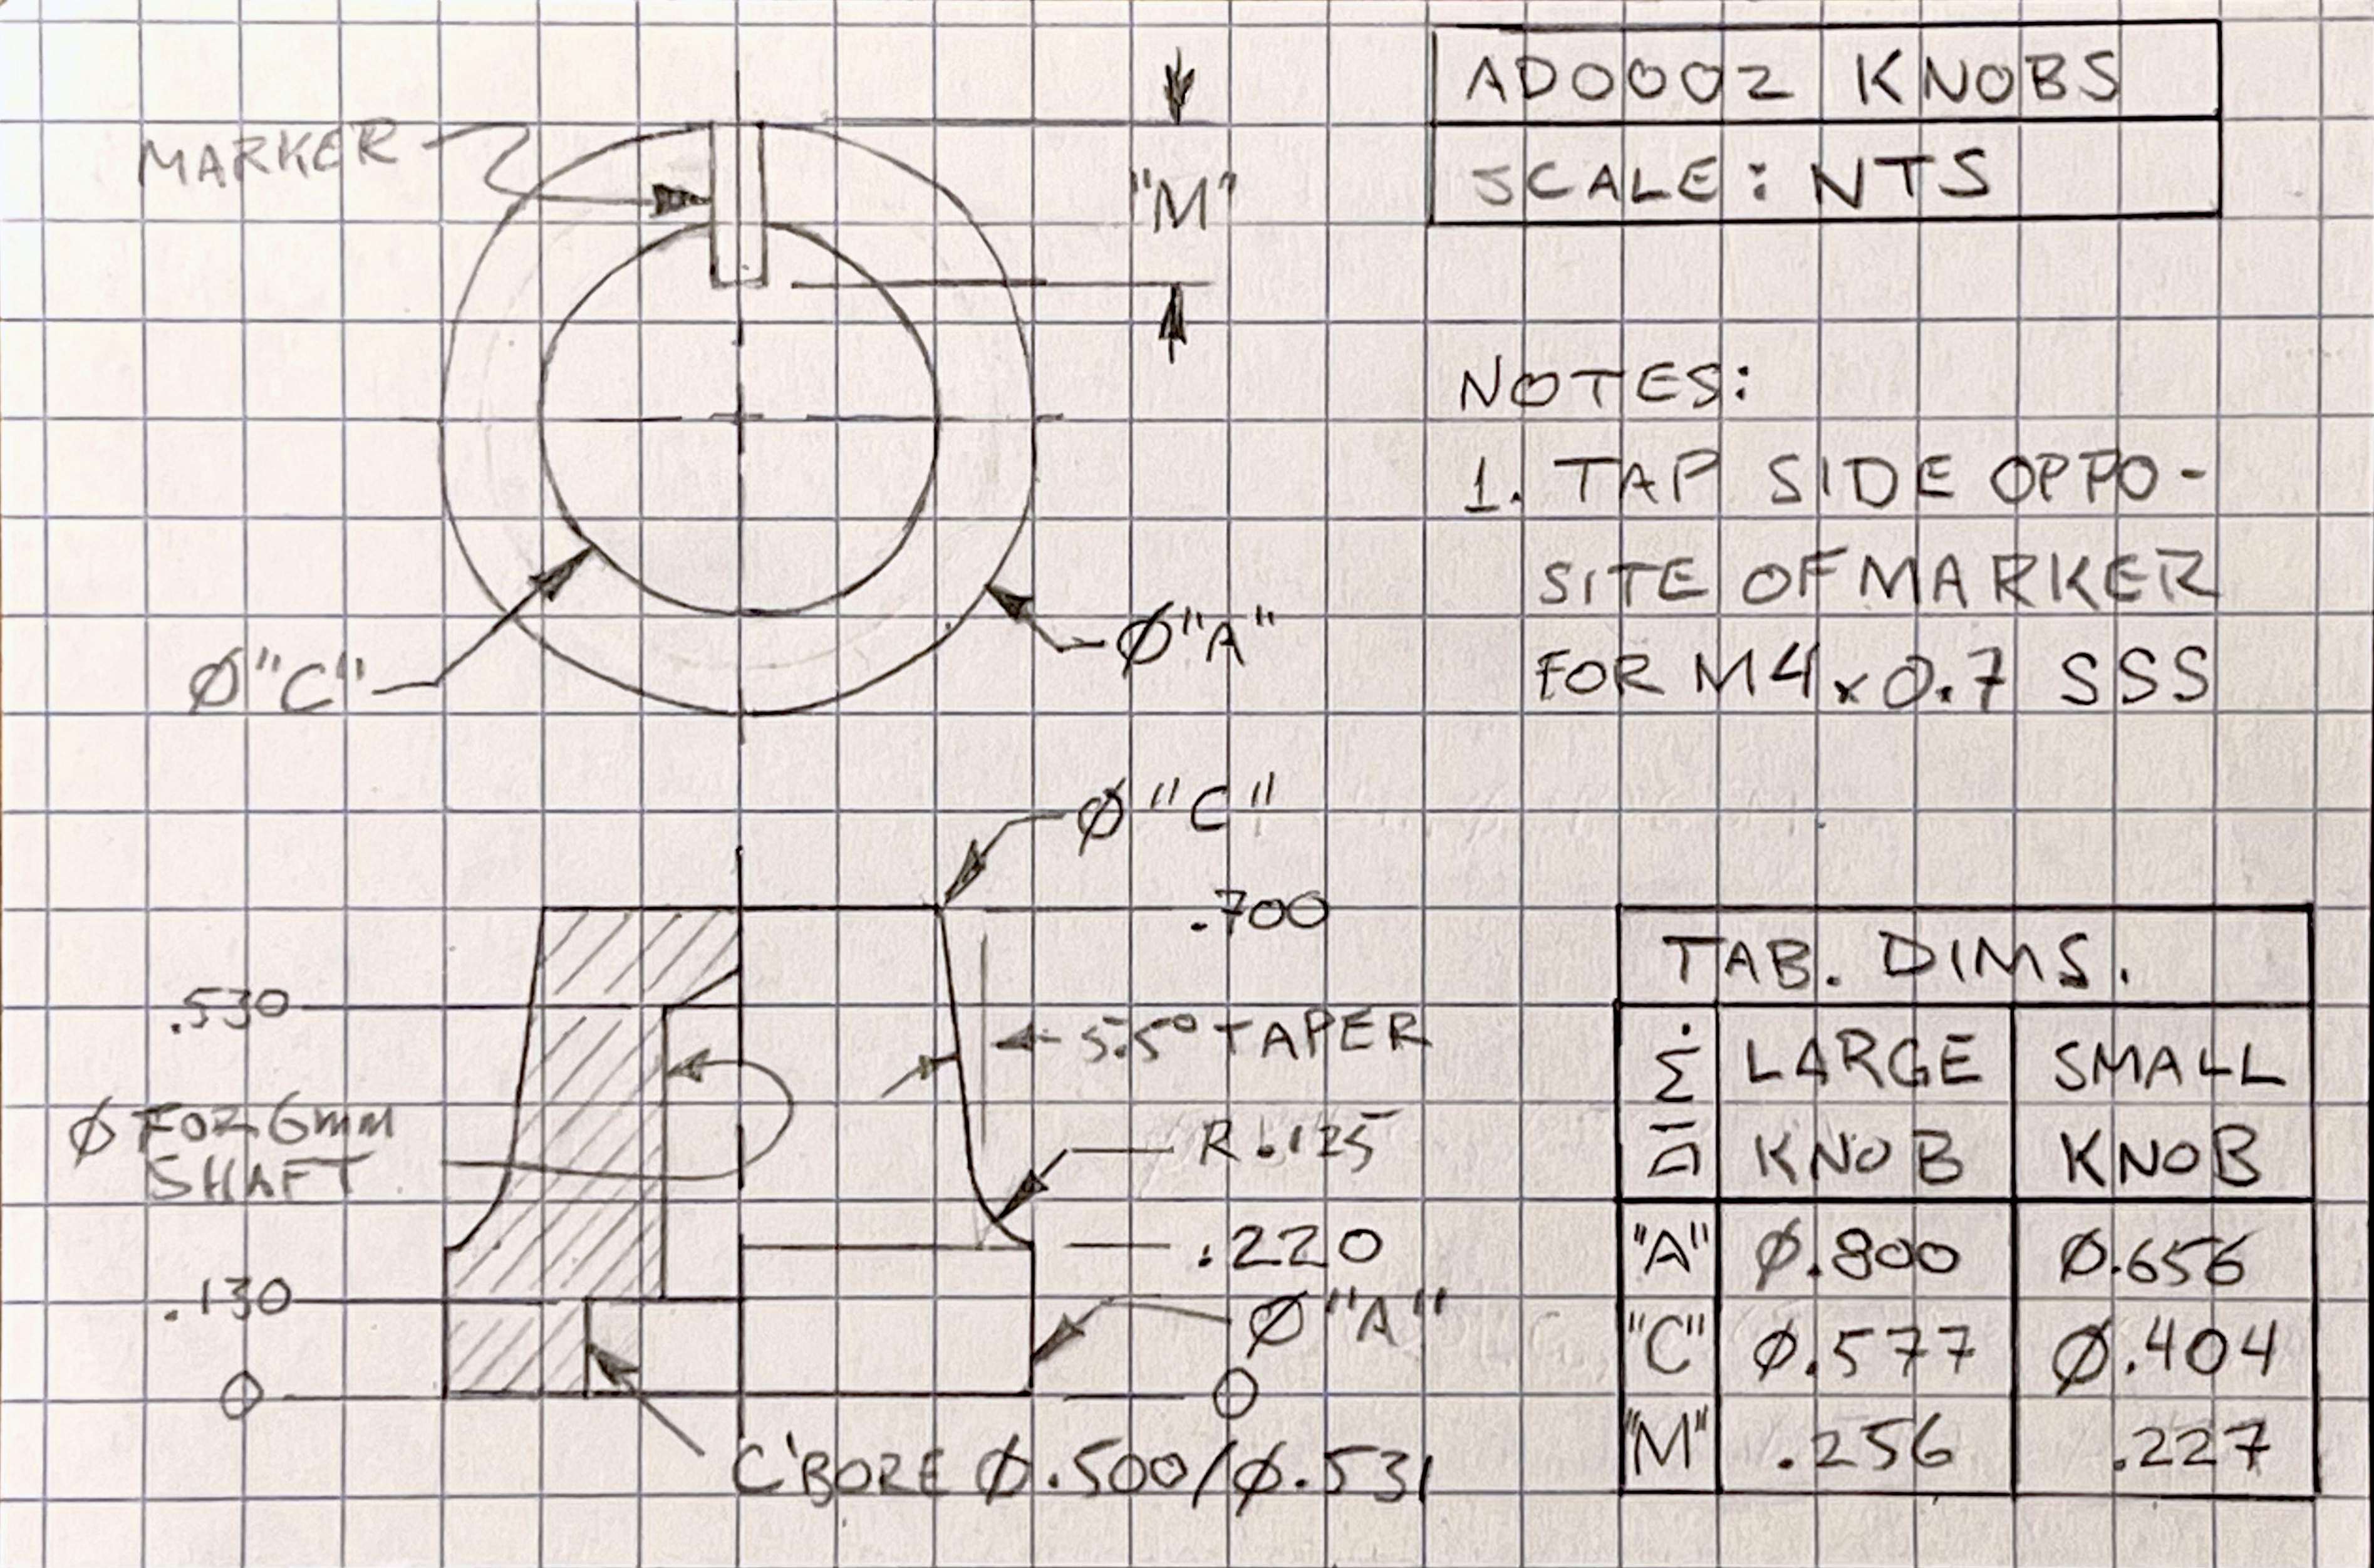 AD0002 KNOBS
SCALE: NTS
MARKER
"M"
NOTES:
1. TAP SIDE OPPO-
SITE OF MARKER
FOR M4x0.7 SSS
Ø"A"
Ø"C"
Ø"C"
.700
.530
5.5° TAPER
Ø FOR 6mm
SHAFT
R.125
.220
.130
Ø"A"
0
0
C'BORE Ø.500/Ø.531
TAB. DIMS.
DIM.
LARGE
KNOB
SMALL
KNOB
"A" Ø.800 Ø.656
"C" Ø.577 Ø.404
"M" .256 .227